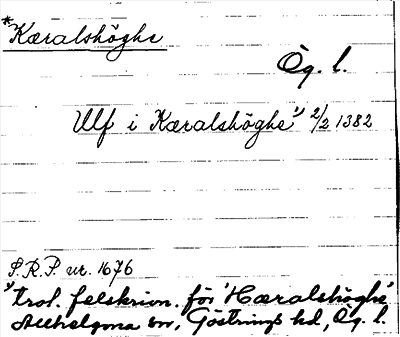 *Kæralshöghe
Ög. l.
Ulf i Kæralshöghe¹⁾ 2/2 1382
S.R.P. nr. 1676
¹⁾ trol. felskrivn. för "Hæralshöghe"
Allhelgona sn, Göstrings hd, Ög. l.